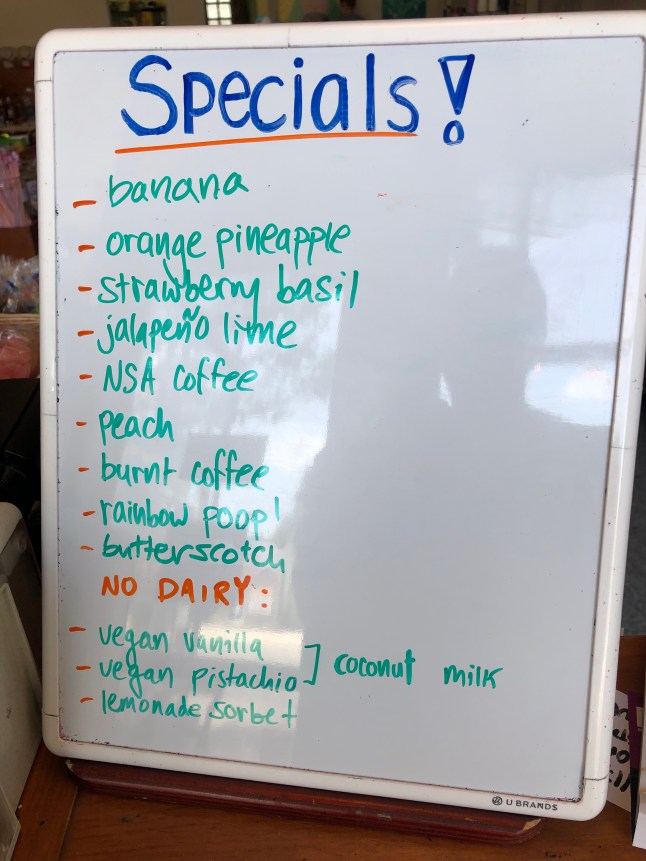 Specials!
- banana
- orange pineapple
- strawberry basil
- jalapeño lime
- NSA coffee
- peach
- burnt coffee
- rainbow poop!
- butterscotch
NO DAIRY:
- vegan vanilla
- vegan pistachio ] coconut milk
- lemonade sorbet
U BRANDS